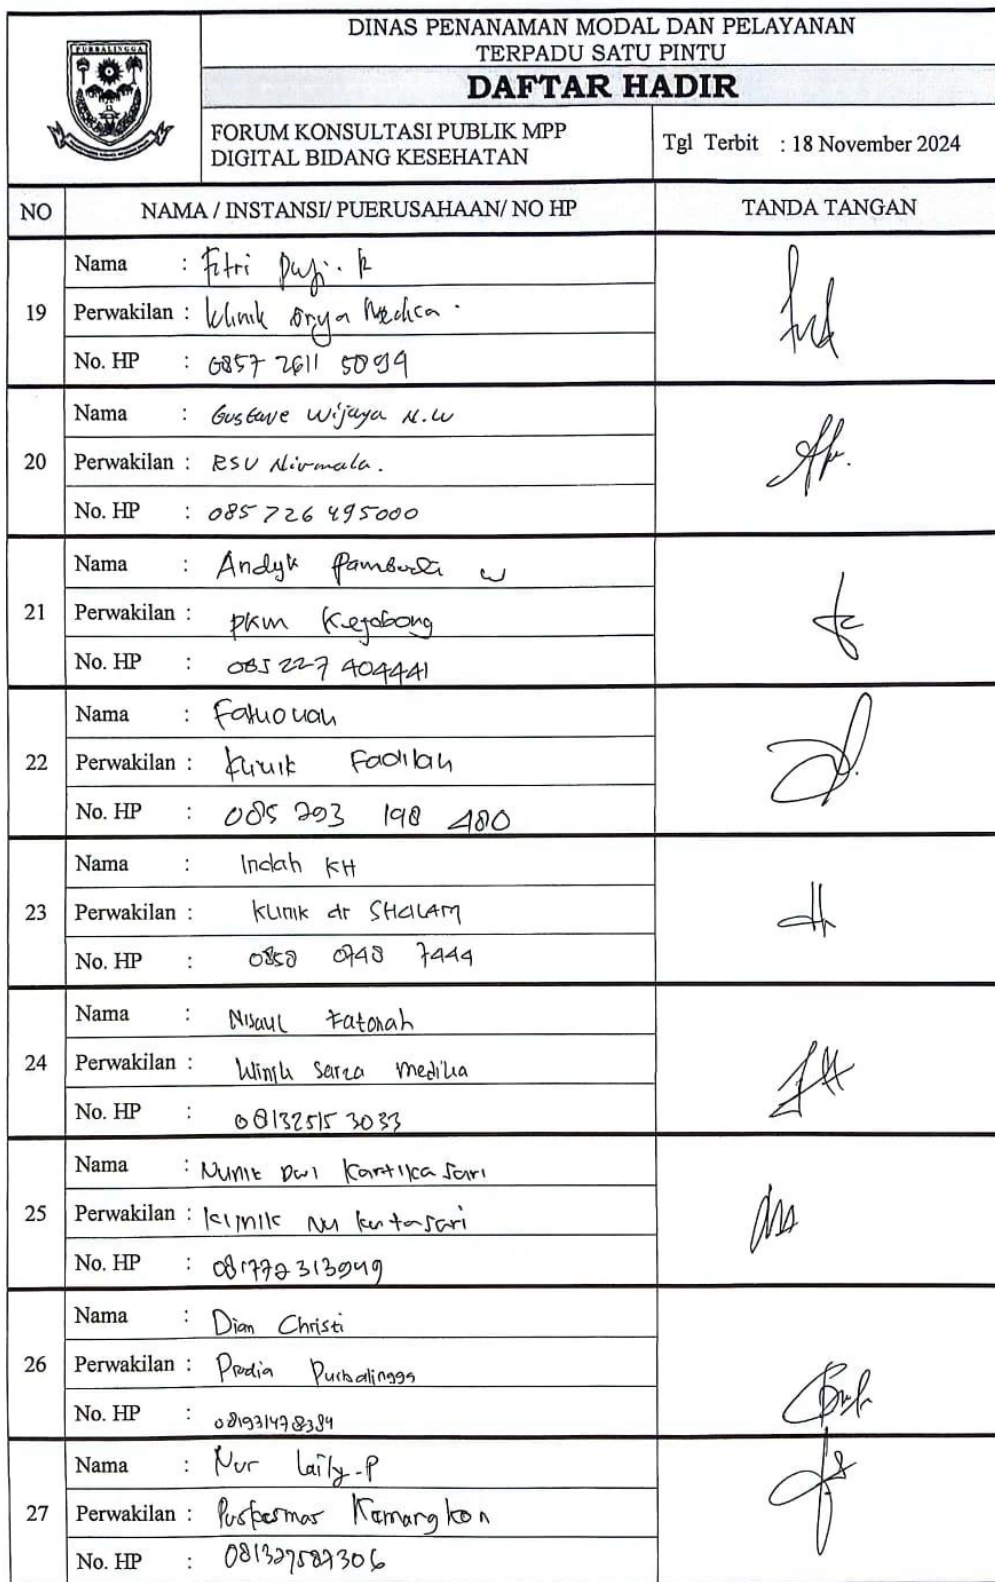 PURBALINGGA
DINAS PENANAMAN MODAL DAN PELAYANAN
TERPADU SATU PINTU
DAFTAR HADIR
FORUM KONSULTASI PUBLIK MPP
DIGITAL BIDANG KESEHATAN
Tgl Terbit : 18 November 2024
NO NAMA / INSTANSI/ PUERUSAHAAN/ NO HP TANDA TANGAN
19
Nama : Fitri Puji. R
Perwakilan : Klinik Medica.
No. HP : 0857 2611 5099
20
Nama : Gustave Wijaya N.W
Perwakilan : RSU Nirmala.
No. HP : 085 726 495000
21
Nama : Andyk Pambudi W
Perwakilan : PKM Kejobong
No. HP : 085 227 404441
22
Nama :
Perwakilan : Klinik Fadilah
No. HP : 085 293 198 480
23
Nama : Indah KH
Perwakilan : Klinik dr SHALAM
No. HP : 7444
24
Nama : Nisaul Fatonah
Perwakilan : Medika
No. HP : 081325153033
25
Nama : Nunik Dwi Kartika Sari
Perwakilan : Klinik NU Kutasari
No. HP :
26
Nama : Dian Christi
Perwakilan : Prodia Purbalingga
No. HP : 081931478384
27
Nama : Nur Laily.P
Perwakilan : Puskesmas Kemangkon
No. HP :